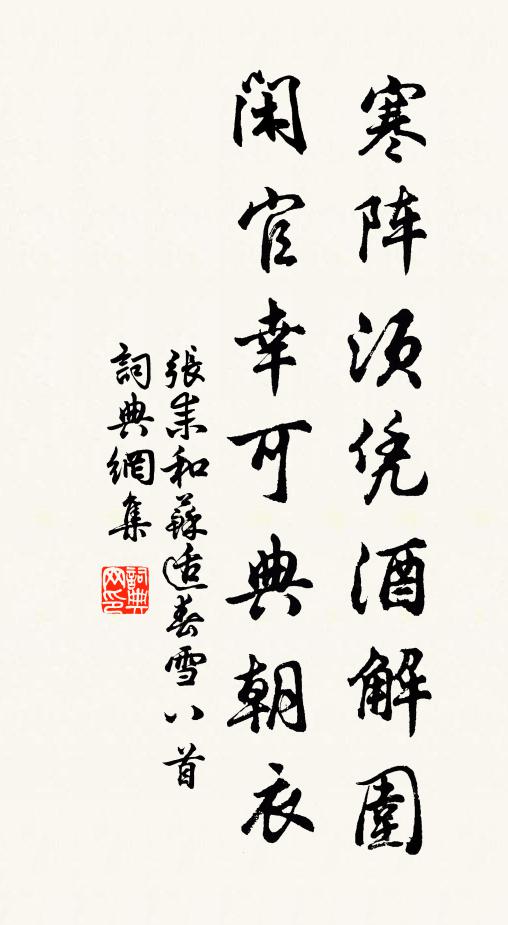 寒阵须凭酒解围
闲官幸可典朝衣
張耒和蘇适春雪八首
詞典網集
詞典网印